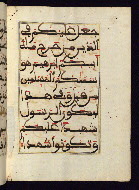 جعل عليكم في
الدين من حرج ملة
ابيكم ابرهيم هو
سميكم المسلمين
من قبل وفي هذا
ليكون الرسول
شهيدا عليكم
وتكونوا شهدا